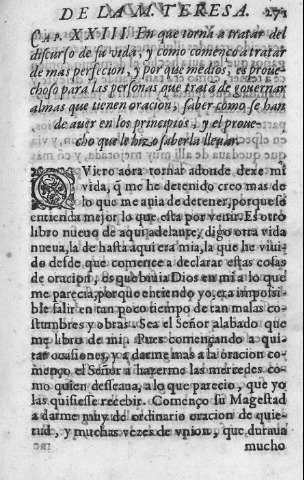 DE LA M. TERESA. 271
CAP. XXIII. En que torna a tratar del
discurso de su vida, y como començo a tratar
de mas perfecion, y por que medios, es proue-
choso para las personas que trata de gouernar
almas que tienen oracion, saber como se han
de auer en los principios, y el proue-
cho que le hizo saberla lleuar.
QViero aora tornar adonde dexe mi
vida, q̃ me he detenido creo mas de
lo que me auia de detener, porque se
entienda mejor lo que esta por venir. Es otro
libro nueuo de aqui adelante, digo otra vida
nueua, la de hasta aqui era mia, la que he viui-
do desde que comence a declarar estas cosas
de oracion, es que biuia Dios en mi a lo que
me parecia, porque entiendo yo, era imposi-
ble salir en tan poco tiempo de tan malas co-
stumbres y obras. Sea el Señor alabado que
me libro de mi. Pues començando a qui-
tar ocasiones, y a darme mas a la oracion co-
menço el Señor a hazerme las mercedes co-
mo quien desseaua, a lo que parecio, que yo
las quisiesse recebir. Començo su Magestad
a darme muy de ordinario oracion de quie-
tud, y muchas vezes de vnion, que duraua
mucho